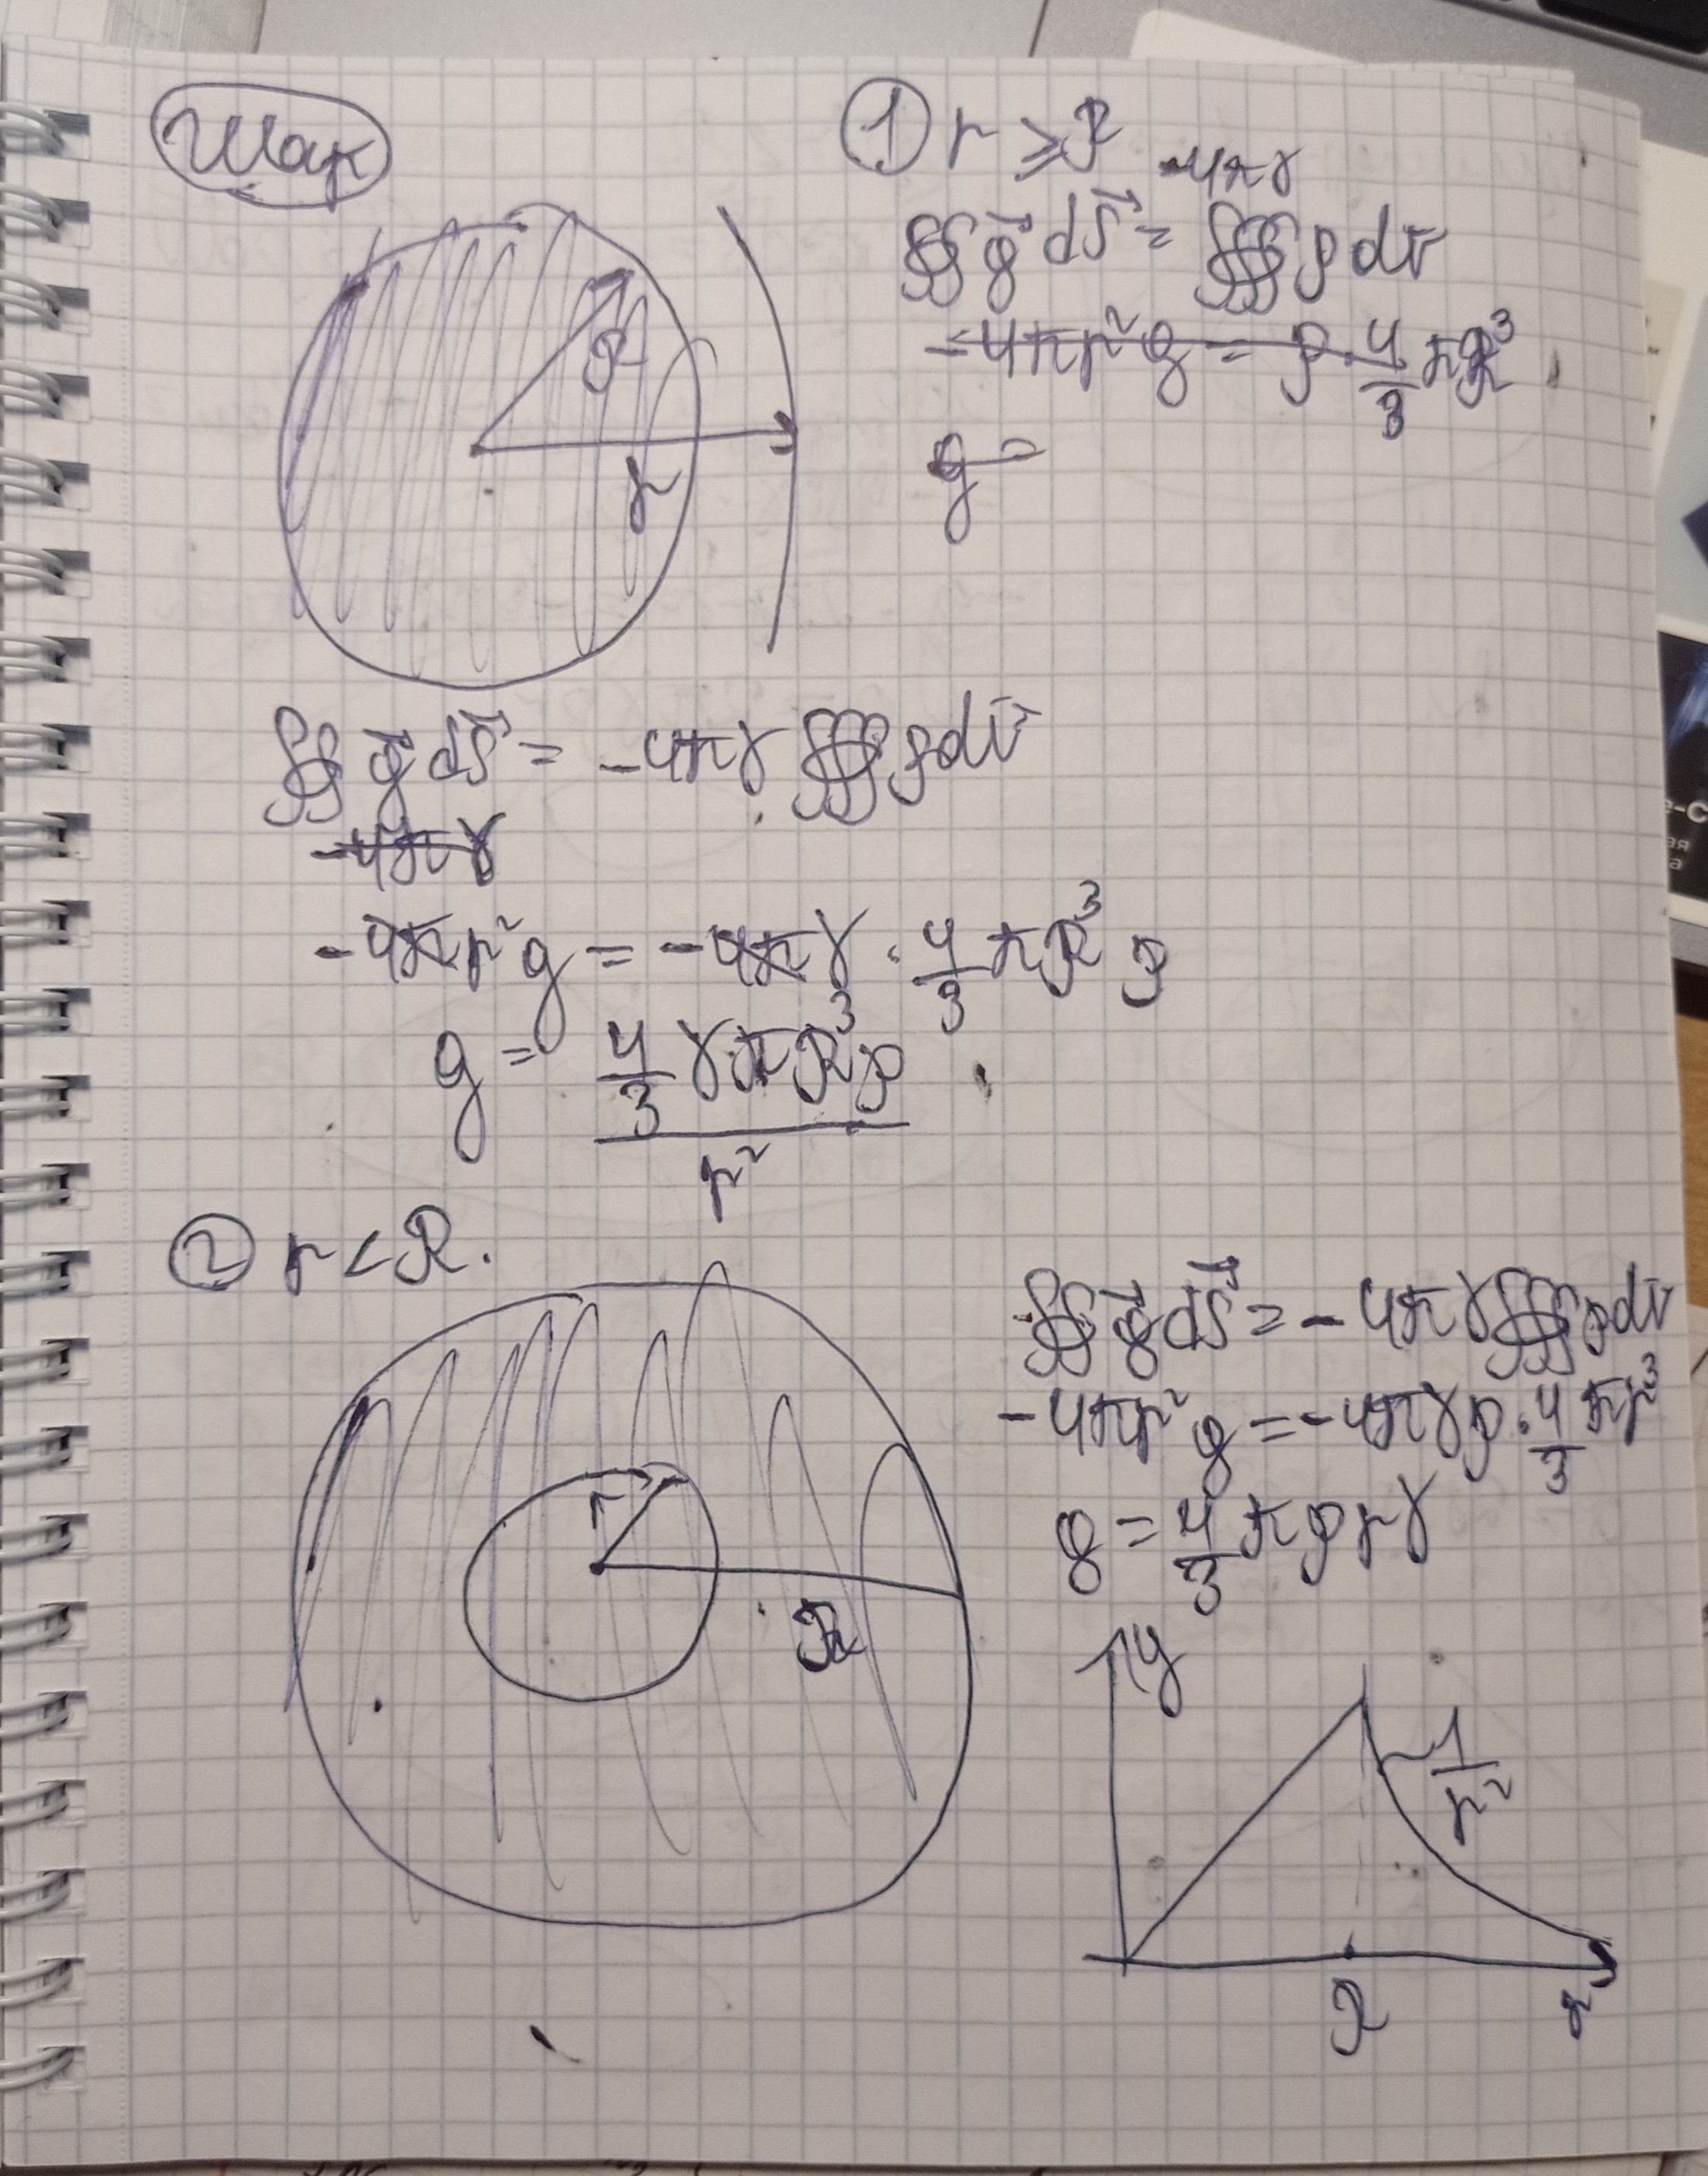 Шар
① r ≥ R
-4πγ
∯ g⃗ dS⃗ = ∰ ρ dv
-4πr² g = ρ · 4/3 πR³
g =
R
r
∯ g⃗ dS⃗ = -4πγ ∰ ρ dv
-4πγ
-4πr² g = -4πγ · 4/3 πR³ ρ
g = (4/3 γπR³ρ) / r²
② r < R.
∯ g⃗ dS⃗ = -4πγ ∰ ρ dv
-4πr² g = -4πγρ · 4/3 πr³
g = 4/3 πρrγ
r
R
g
~ 1/r²
R
r